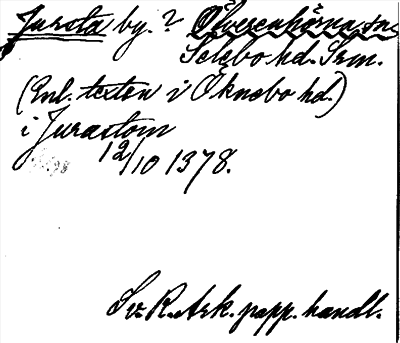 Jursta by. ? Överenhörna sn
Selebo hd. Srm.
(Enl. texten i Öknebo hd.)
i Jurastom
12/10 1378.
Sv. R. Ark. papp. handl.